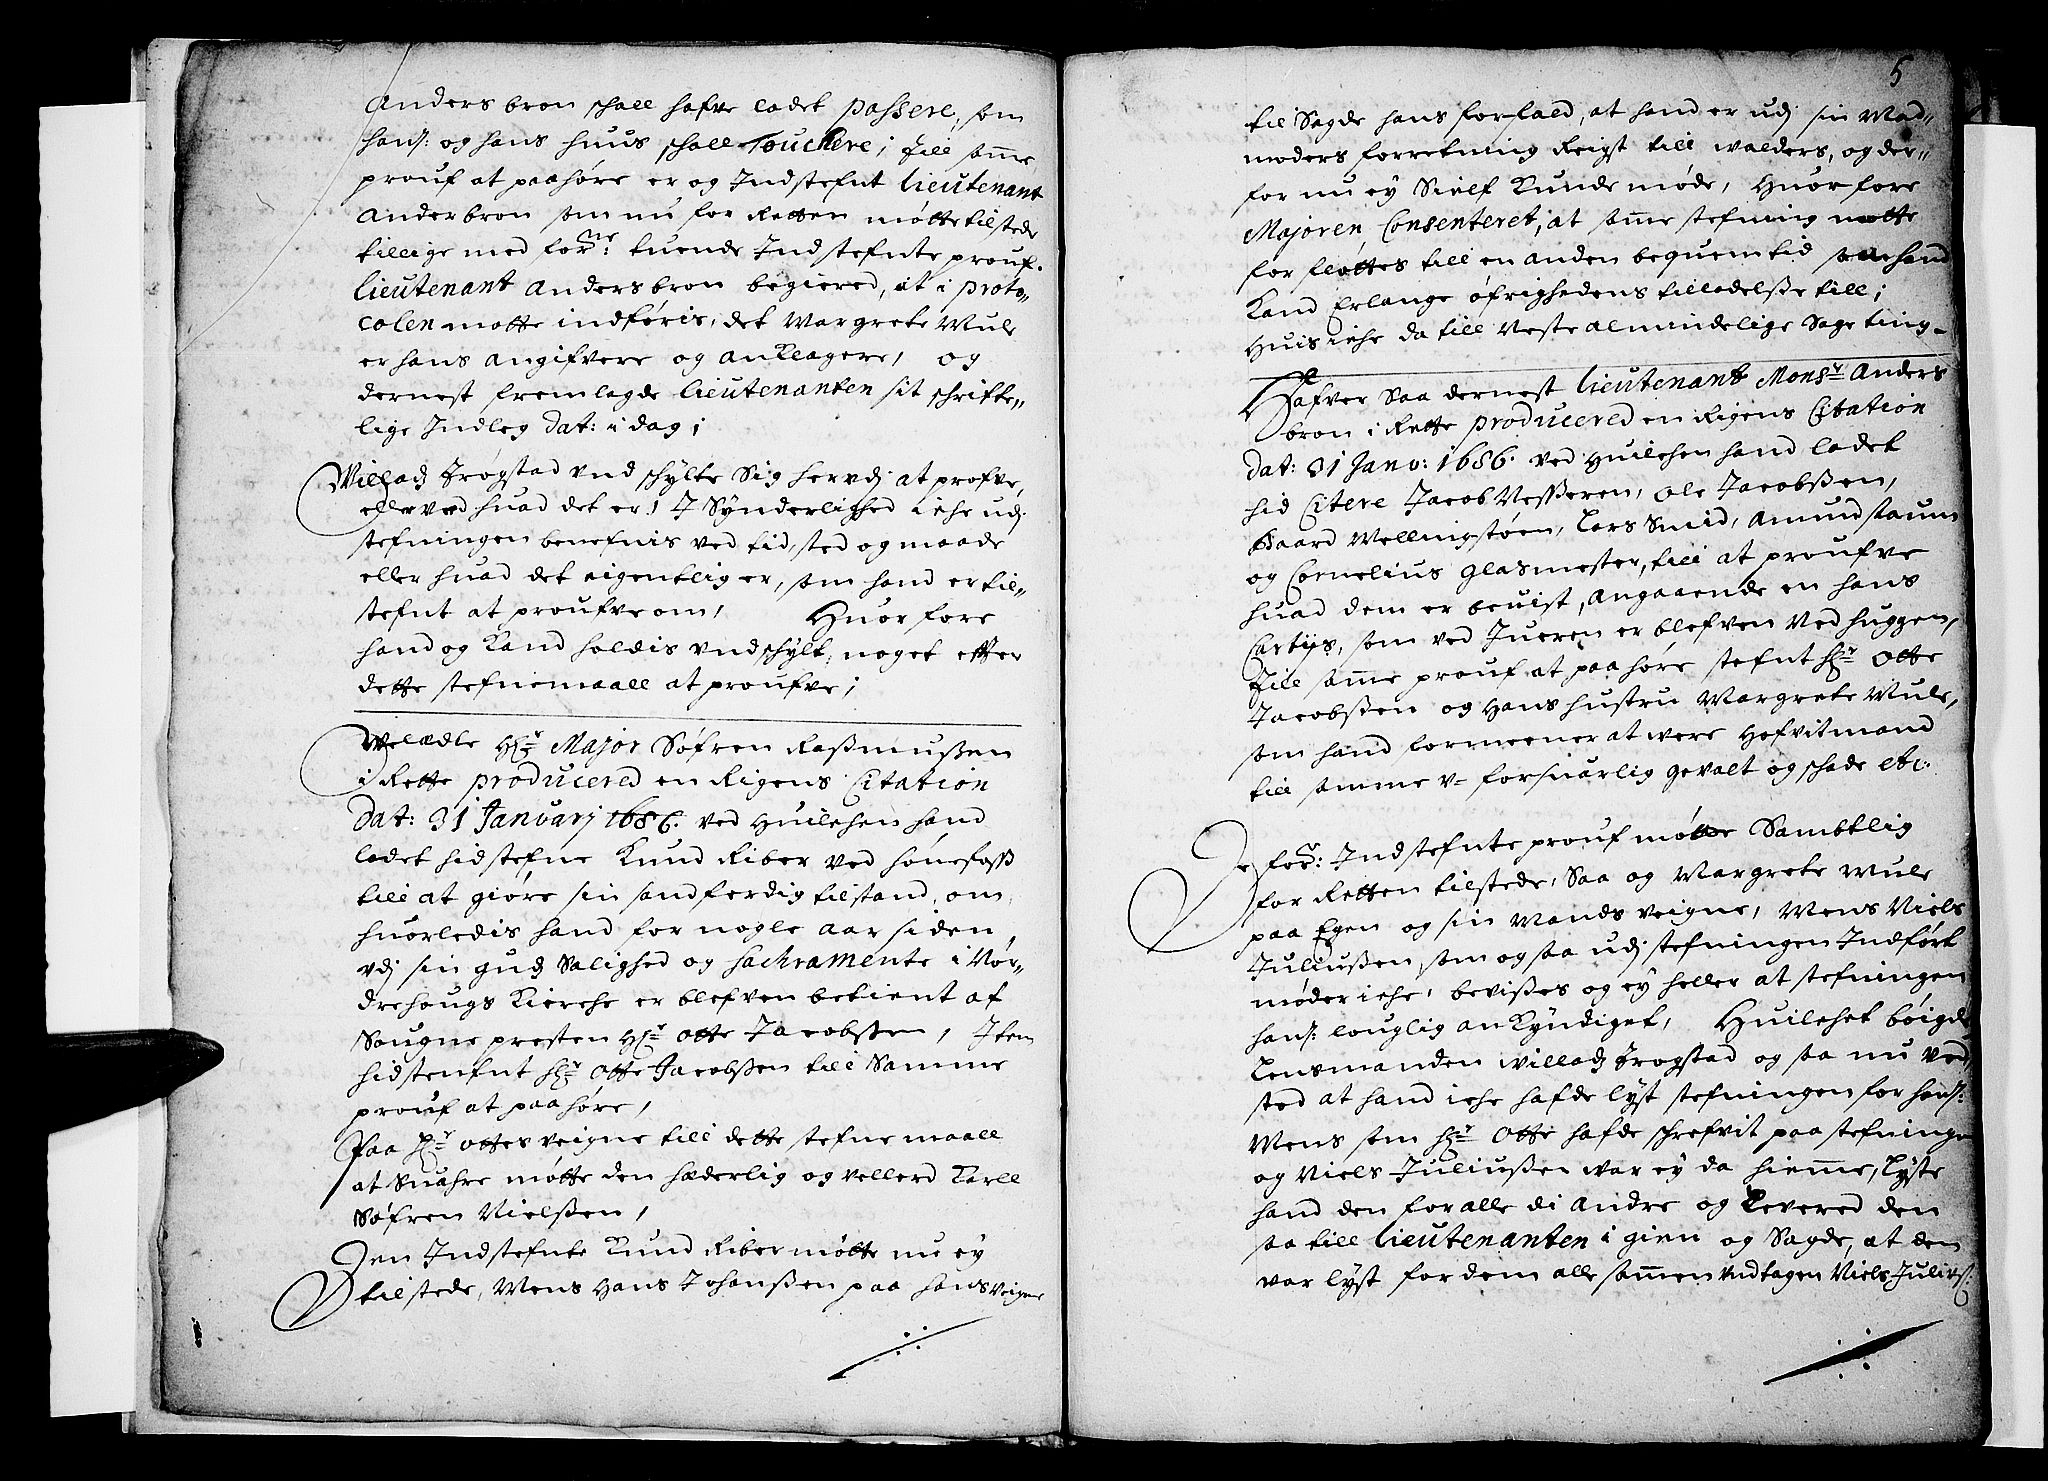 Anders bron schall hafve ladet passere, som
hans: og hans huus schall Touchere; Till samme
prouf at paahøre er og Indstefnt lieutenant
Anderbron som nu for Retten møtte tilstede
tillige med forne: tuende Indstefnte prouf.
lieutenant Andersbron begiered, at i proto„
colen motte indføris, det Margrete Mule
er hans angifvere og anklagere, og
dernest fremlagde lieutenanten sit schrifte„
lige Indleg dat: i dag;
Villadz Frøgstad vndschylte Sig hervdj at profve,
eller ved huad det er, J Synderlighed iche udj
stefningen benefnis ved tid, sted og maade
eller huad det eigentlig er, som hand er til„
stefnt at proufve om, Huorfore
hand og kand holdis vndschylt, noget effter
dette stefnemaall at proufve;
Welædle Hr Major Søfren Rasmussen
i Rette producered en Rigens Citation
dat: 31 Januarj 1686. ved Huilchen hand
ladet hidstefne Knud Riber ved Hønefoss
till at giøre sin sandferdig tilstand, om
huorledis hand for nogle aar siden
vdj sin gudz Salighed og Sachramente i Nor„
drehougs Kierche er blefven betient af
Sougne presten Hr Otte Jacobssen, Item
hidstenfnt Hr Otte Jacobssen till Samme
prouf at paahøre,
Paa Hr Ottes veigne till dette stefnemaall
at Suahre møtte den hæderlig og vellerd Karll
Søfren Nielssen,
Den Indstefnte Knud Riber møtte nu ey
tilstede, Mens Hans Johanssen paa hans veigne
5
til Sagde hans forfald, at hand er udj sin Mad„
moders forretning Reigst till walders, og der„
for nu ey Sielf kunde møde, Huorfore
Majoren Consenteret, at samme stefning motte
forflottes till en anden bequem tid saa hand
kand Erlange øfrighedens tilladelsse till;
Huis iche da till Neste almindelige Sageting-
Hafver Saa dernest lieutenant Monsr Anders
bron i Rette producered en Rigens Citation
dat: 31 Janv: 1686. ved Huilchen hand ladet
hid Citere Jacob Vesseren, Ole Jacobssen,
Baard Wellingstøen, Lars Smid, Amund staum
og Cornelius Glasmester, till at proufve
huad dem er beuist, angaaende en hans
Cartijs, som ved Jueren er blefven Ved huggen,
Till samme prouf at paahøre stefnt Hr Otte
Jacobssen og Hans hustru Margrete Mule,
som hand formeener at were Hofvitmand
till samme v= forsuarlig gevalt og schade etc:
De for: Indstefnte prouf møtte Sambtlig
for Retten tilstede, Saa og Margrete Mule
paa Egen og sin Mands veigne, Mens Niels
Juliussen, som og saa udj stefningen Indført
møder iche, bevisses og ey heller at stefningen
hans: louglig an kyndiget, Huilchet bøigde
Lensmanden Willadz Frogstad og saa nu ved„
stod at hand iche hafde lyst stefningen for hans:
Mens som Hr Otte hafde schrefvit paa stefninge
og Niels Juliussen war ey da hiemme, Lyste
hand den for alle di andre og Levered den
saa till lieutenanten i gien og Sagde, at den
var lyst for dem alle sammen vndtagen Niels Julius: